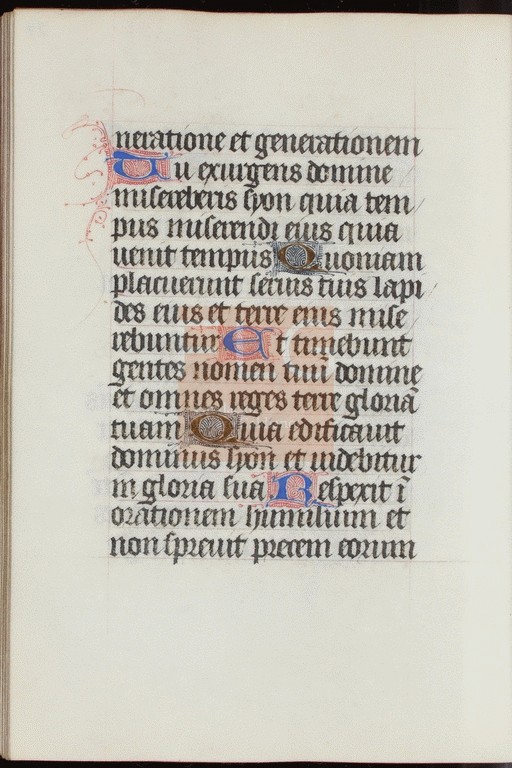 neratione et generationem
Tu exurgens domine
misereberis syon quia tem
pus miserendi eius quia
uenit tempus Quoniam
placuerunt seruis tuis lapi
des eius et terre eius mise
rebuntur Et timebunt
gentes nomen tuum domine
et omnes reges terre gloriā
tuam Quia edificauit
dominus syon et uidebitur
in gloria sua Respexit ī
orationem humilium et
non spreuit precem eorum